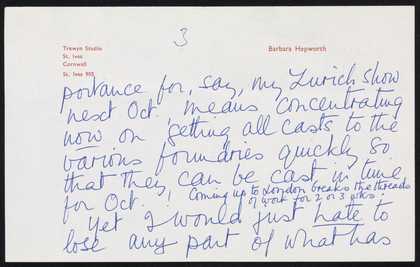 3
Trewyn Studio
St. Ives
Cornwall
St. Ives 955
Barbara Hepworth
portance for, say, my Zurich show
next Oct. means concentrating
now on getting all casts to the
various foundries quickly so
that they can be cast in time
for Oct. ! Coming up to London breaks the threads
of work for 2 or 3 wks.
Yet I would just hate to
lose any part of what has